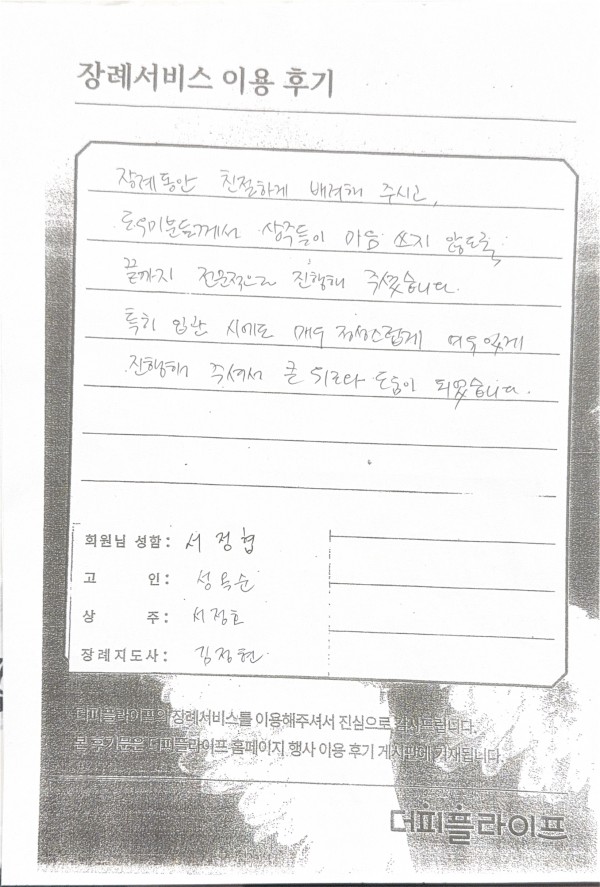 장례서비스 이용 후기
장례동안 친절하게 배려해 주시고,
도우미분들께서 상주들이 마음 쓰지 않도록,
끝까지 전문적으로 진행해 주셨습니다.
특히 입관 시에도 매우 정성스럽게 예우있게
진행해 주셔서 큰 위로와 도움이 되었습니다.
회원님 성함: 서정협
고 인: 성옥순
상 주: 서정효
장례지도사: 김정현
더피플라이프의 장례서비스를 이용해주셔서 진심으로 감사드립니다.
본 후기문은 더피플라이프 홈페이지 행사 이용 후기 게시판에 기재됩니다.
더피플라이프